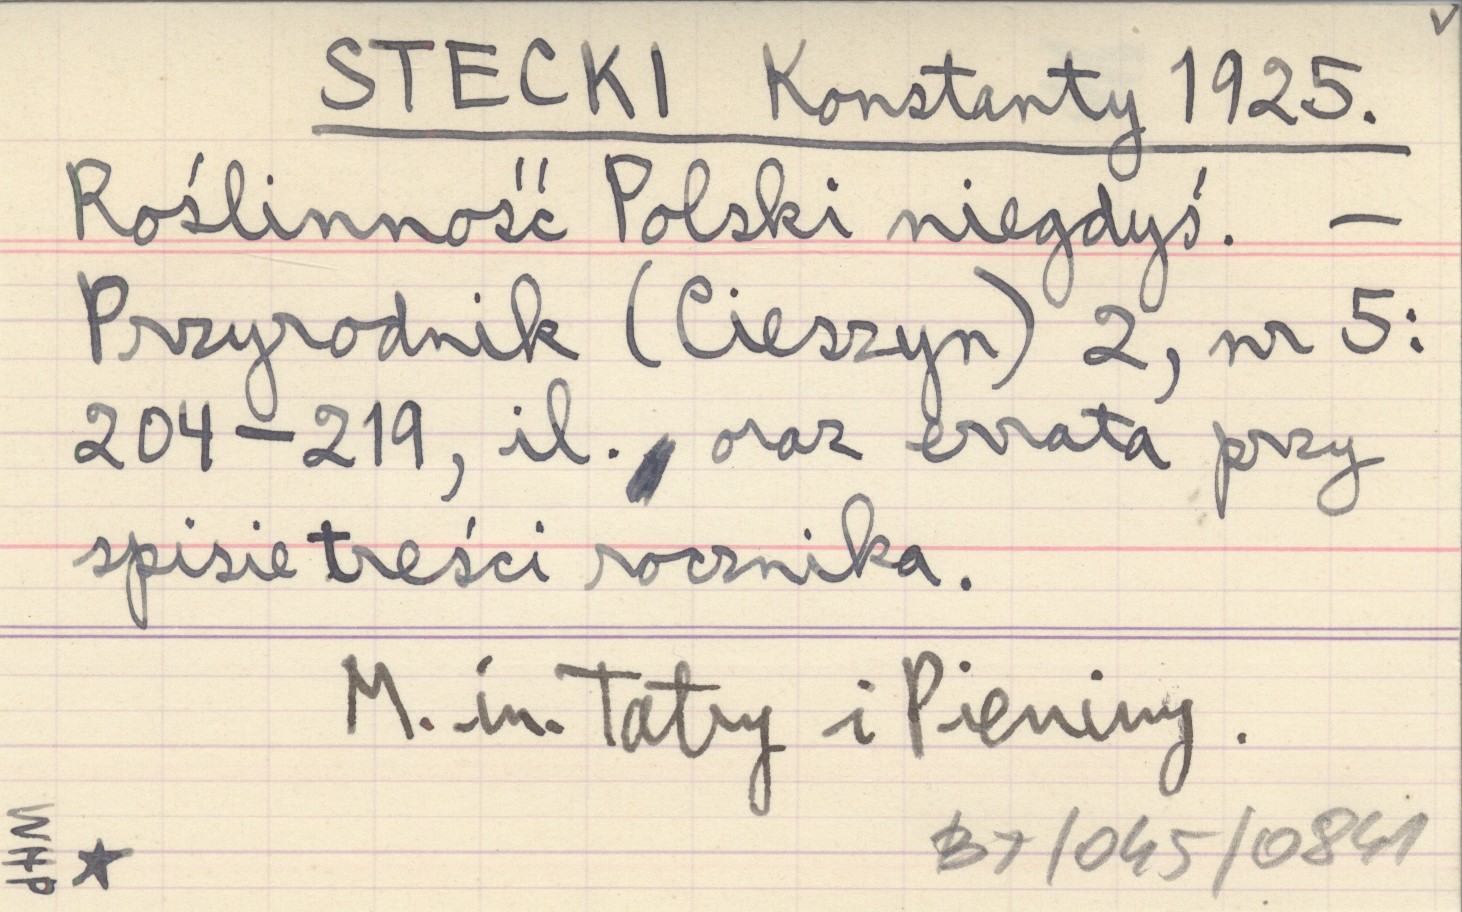 STECKI Konstanty 1925.
Roślinność Polski niegdyś. —
Przyrodnik (Cieszyn) 2, nr 5:
204—219, il., oraz errata przy
spisie treści rocznika.
M. in. Tatry i Pieniny.
BT/045/0841
WHP